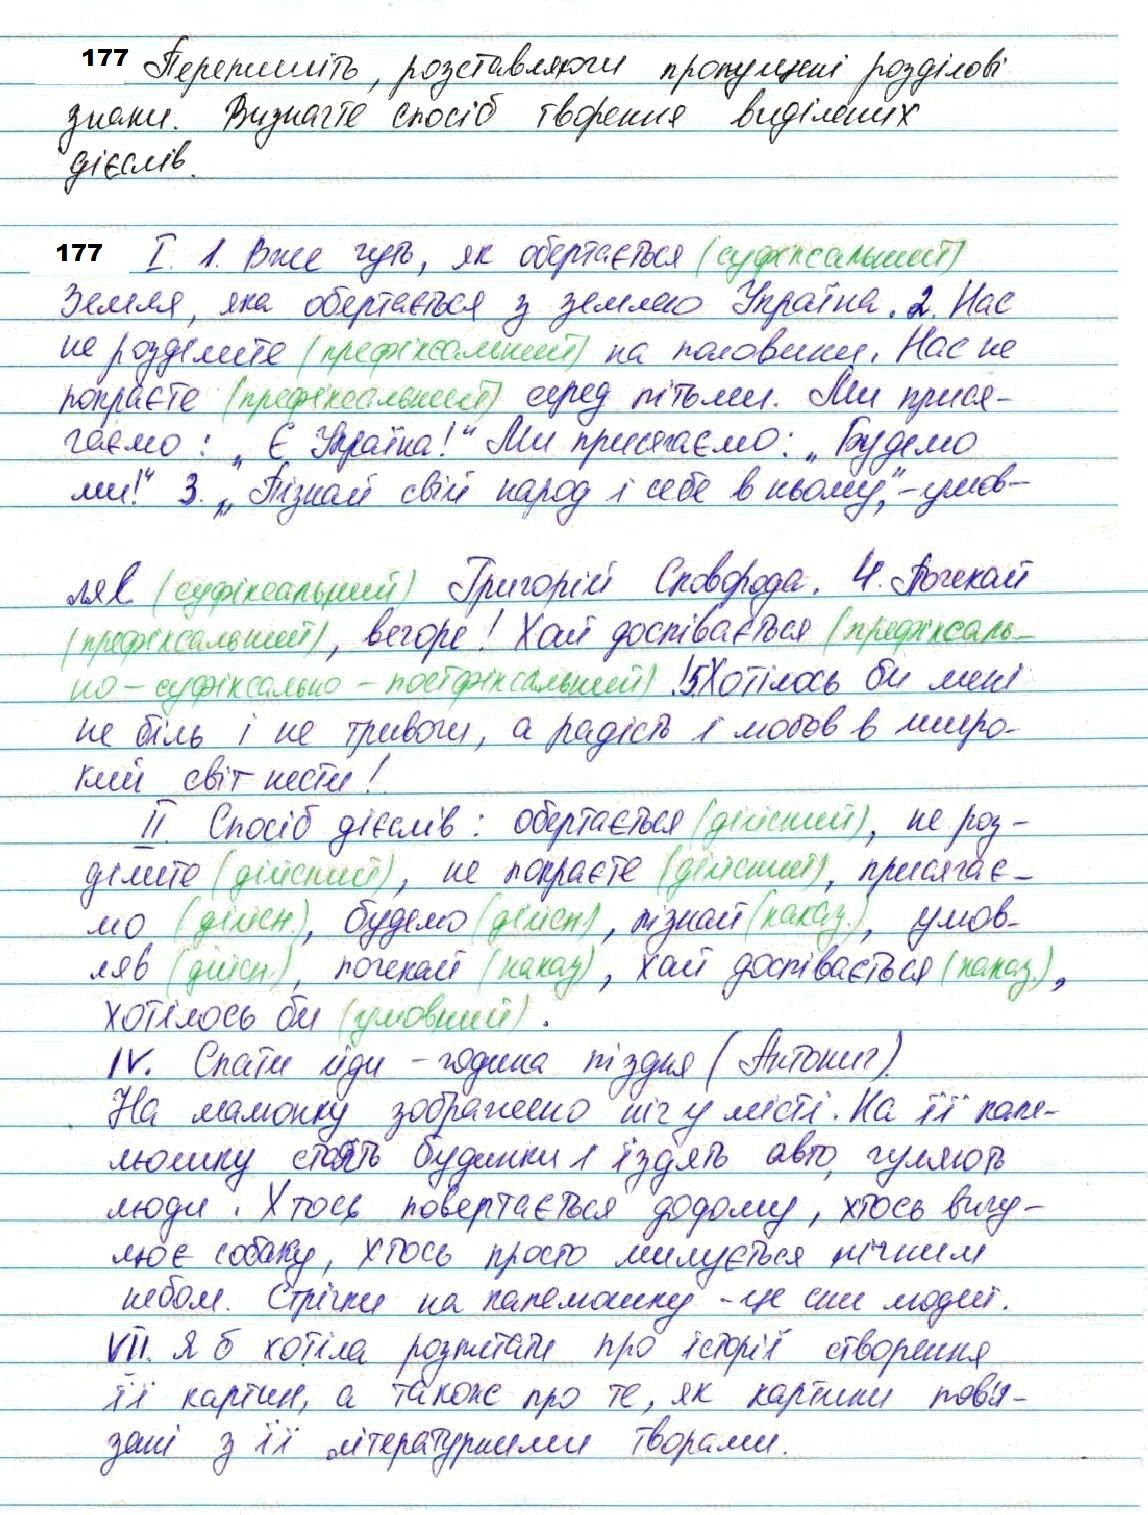 177 Перепишіть, розставляючи пропущені розділові
знаки. Визначте спосіб творення виділених
дієслів.
177 I. 1. Вже чуть, як обертається (суфіксальний)
Земля, яка обертається з землею Україна. 2. Нас
не розділите (префіксальний) на половини. Нас не
покраєте (префіксальний) серед пітьми. Ми прися-
гаємо: „Є Україна!“ Ми присягаємо: „Будемо
ми!“ 3. „Пізнай свій народ і себе в ньому“, - умов-
ляв (суфіксальний) Григорій Сковорода. 4. Почекай
(префіксальний), вечоре! Хай доспівається (префіксаль-
но - суфіксально - постфіксальний)! 5 Хотілось би мені
не біль і не тривоги, а радість і любов в широ-
кий світ нести!
II Спосіб дієслів: обертається (дійсний), не роз-
ділите (дійсний), не покраєте (дійсний), присягає-
мо (дійсн.), будемо (дійсн), пізнай (наказ.), умов-
ляв (дійсн.), почекай (наказ), хай доспівається (наказ.),
хотілось би (умовний).
IV. Спати йди - година пізня (Антонич).
На малюнку зображено ніч у місті. На її капе-
люшику стоять будинки і їздять авто, гуляють
люди. Хтось повертається додому, хтось вигу-
лює собаку, хтось просто милується нічним
небом. Стрічки на капелюшку - це сни людей.
VII. Я б хотіла розпитати про історії створення
її картин, а також про те, як картини пов'я-
зані з її літературними творами.